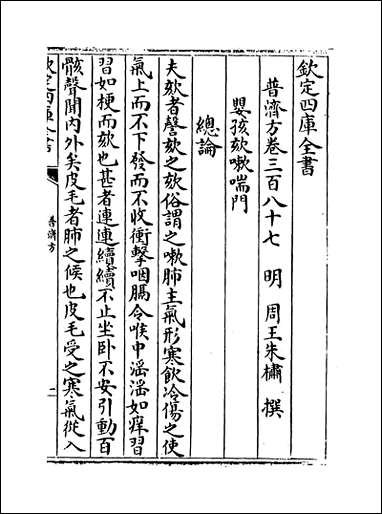 欽定四庫全書
普濟方卷三百八十七　明　周王朱橚　撰
嬰孩欬嗽喘門
總論
夫欬者謦欬之欬俗謂之嗽肺主氣形寒飲冷傷之使
氣上而不下發而不收衝擊咽膈令喉中滛滛如痒習
習如梗而欬也甚者連連續續不止坐卧不安引動百
骸聲聞内外矣皮毛者肺之候也皮毛受之寒氣從入
欽定四庫全書
普濟方
一